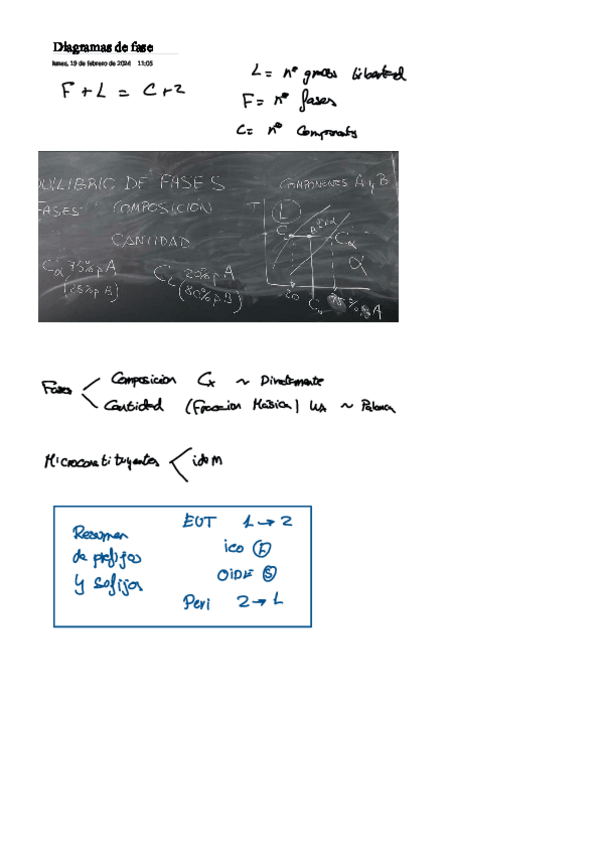 Diagramas de fase
lunes, 19 de febrero de 2024 11:05
F + L = C + 2
L = nº grados libertad
F = nº fases
C = nº
UILIBRIO DE FASES
FASES COMPOSICION
CANTIDAD
Cα 75% p A
(25% p B)
CL 20% p A
(80% p B)
COMPONENTES A y B
T
L
Cα
α
20
C₀
75 % p A
Fases
Composicion Cx ~ Directamente
Cantidad (Fraccion Masica) ~ Palanca
Microconstituyentes
idem
Resumen
de prefijos
y sofijos
EUT 1 → 2
ico
OIDE S
Peri 2 → 1